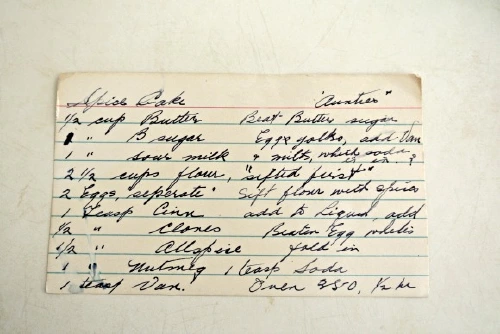 Spice Cake "Aunties"
1/2 cup Butter Beat Butter sugar
1 " B sugar Eggs yolks, add Van
1 " sour milk & milk, which soda is in.
2 1/2 cups flour, "sifted first"
2 Eggs, seperate" Sift flour with spices
1 Teasp Cinn add to Liquid add
1/2 " Cloves Beaten Egg whites
1/2 " Allspice fold in
1 " Nutmeg 1 teasp Soda
1 teasp Van. Oven 350, 1/2 hr